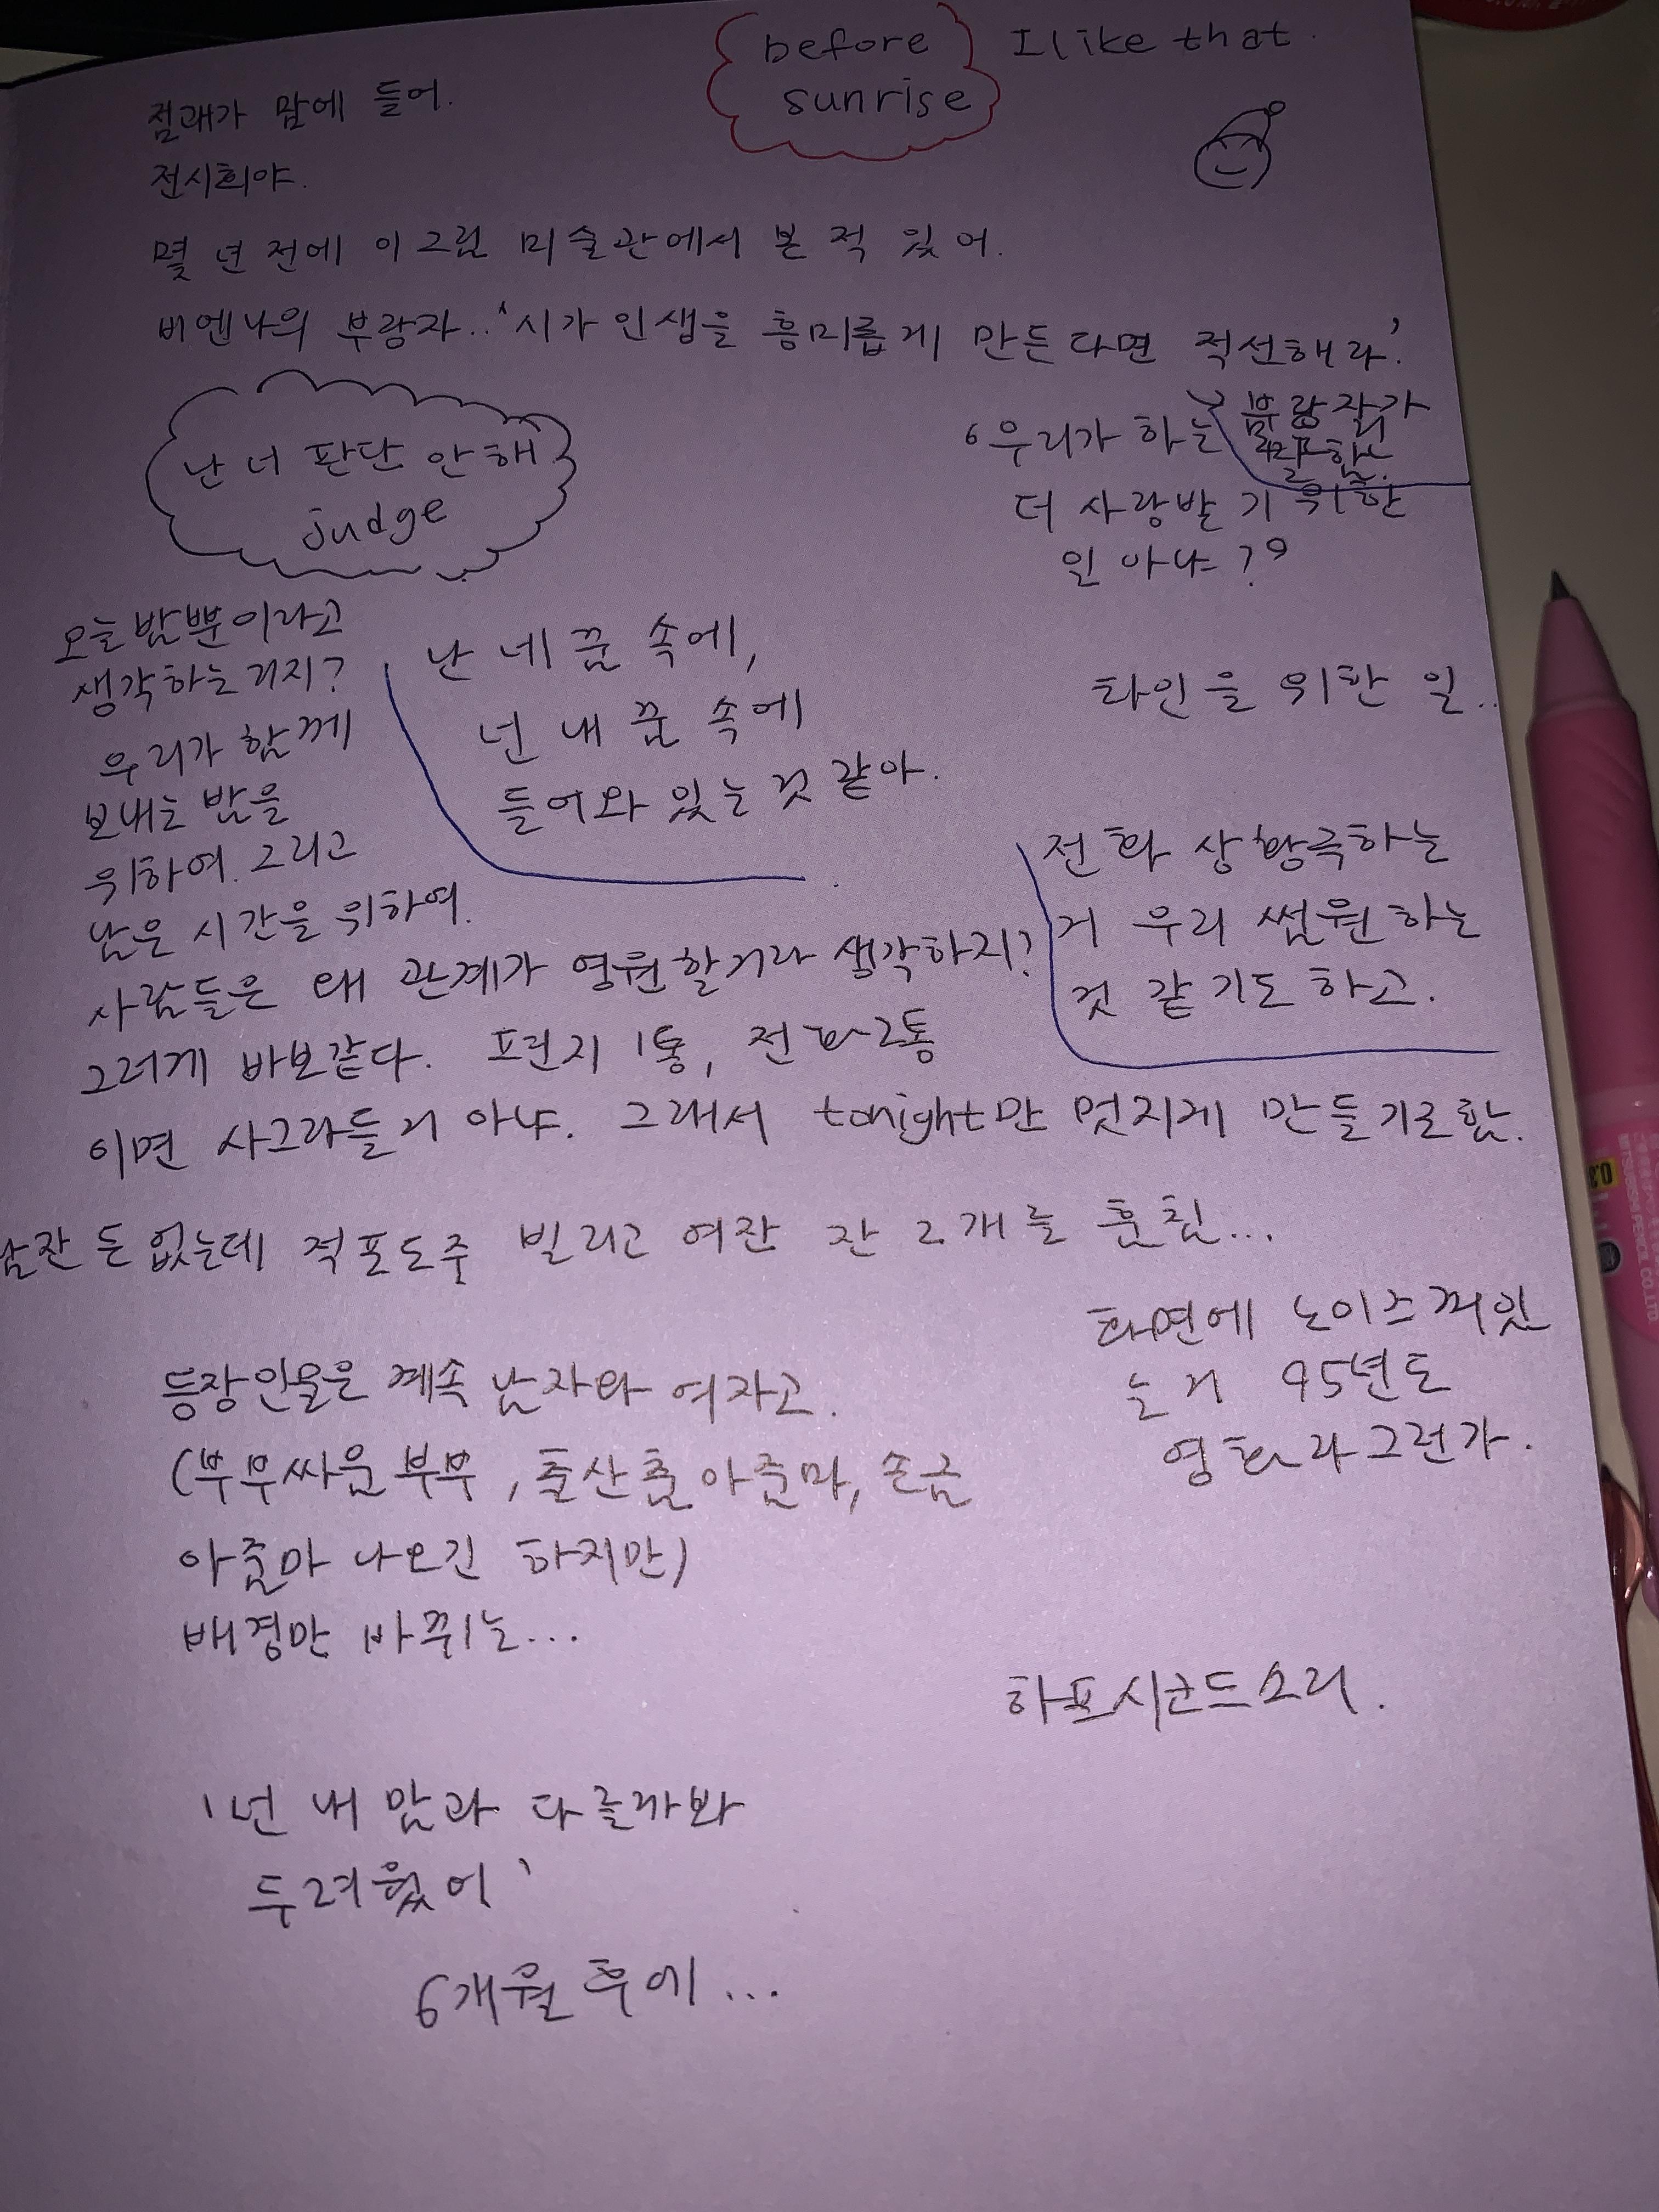 before
sunrise
I like that.
점괘가 맘에 들어.
전시회야.
몇 년 전에 이그림 미술관에서 본 적 있어.
비엔나의 부랑자..'시가 인생을 흥미롭게 만든다면 적선해라'.
부랑자가
말함.
난 너 판단 안 해
judge
'우리가 하는
더 사랑받기 위한
일 아냐?'
오늘 밤뿐이라고
생각하는거지?
우리가 함께
보내는 밤을
위하여. 그리고
남은 시간을 위하여.
난 네 꿈 속에,
넌 내 꿈 속에
들어와 있는 것 같아.
타인을 위한 일..
전화 상황극하는
거 우리 썹원하는
것 같기도 하고.
사람들은 왜 관계가 영원할거라 생각하지?
그러게 바보같다. 편지 1통, 전화2통
이면 사그라들거 아냐. 그래서 tonight만 멋지게 만들기로함.
남잔 돈 없는데 적포도주 빌리고 여잔 잔 2개를 훔침...
화면에 노이즈껴있
는거 95년도
영화라그런가.
등장인물은 계속 남자와 여자고.
(부부싸움 부부, 출산춤 아줌마, 손금
아줌마 나오긴 하지만)
배경만 바뀌는...
하프시코드소리.
'넌 내 맘과 다를까봐
두려웠어'
6개월 후에...
0.3
MITSUBISHI PENCIL CO.LTD